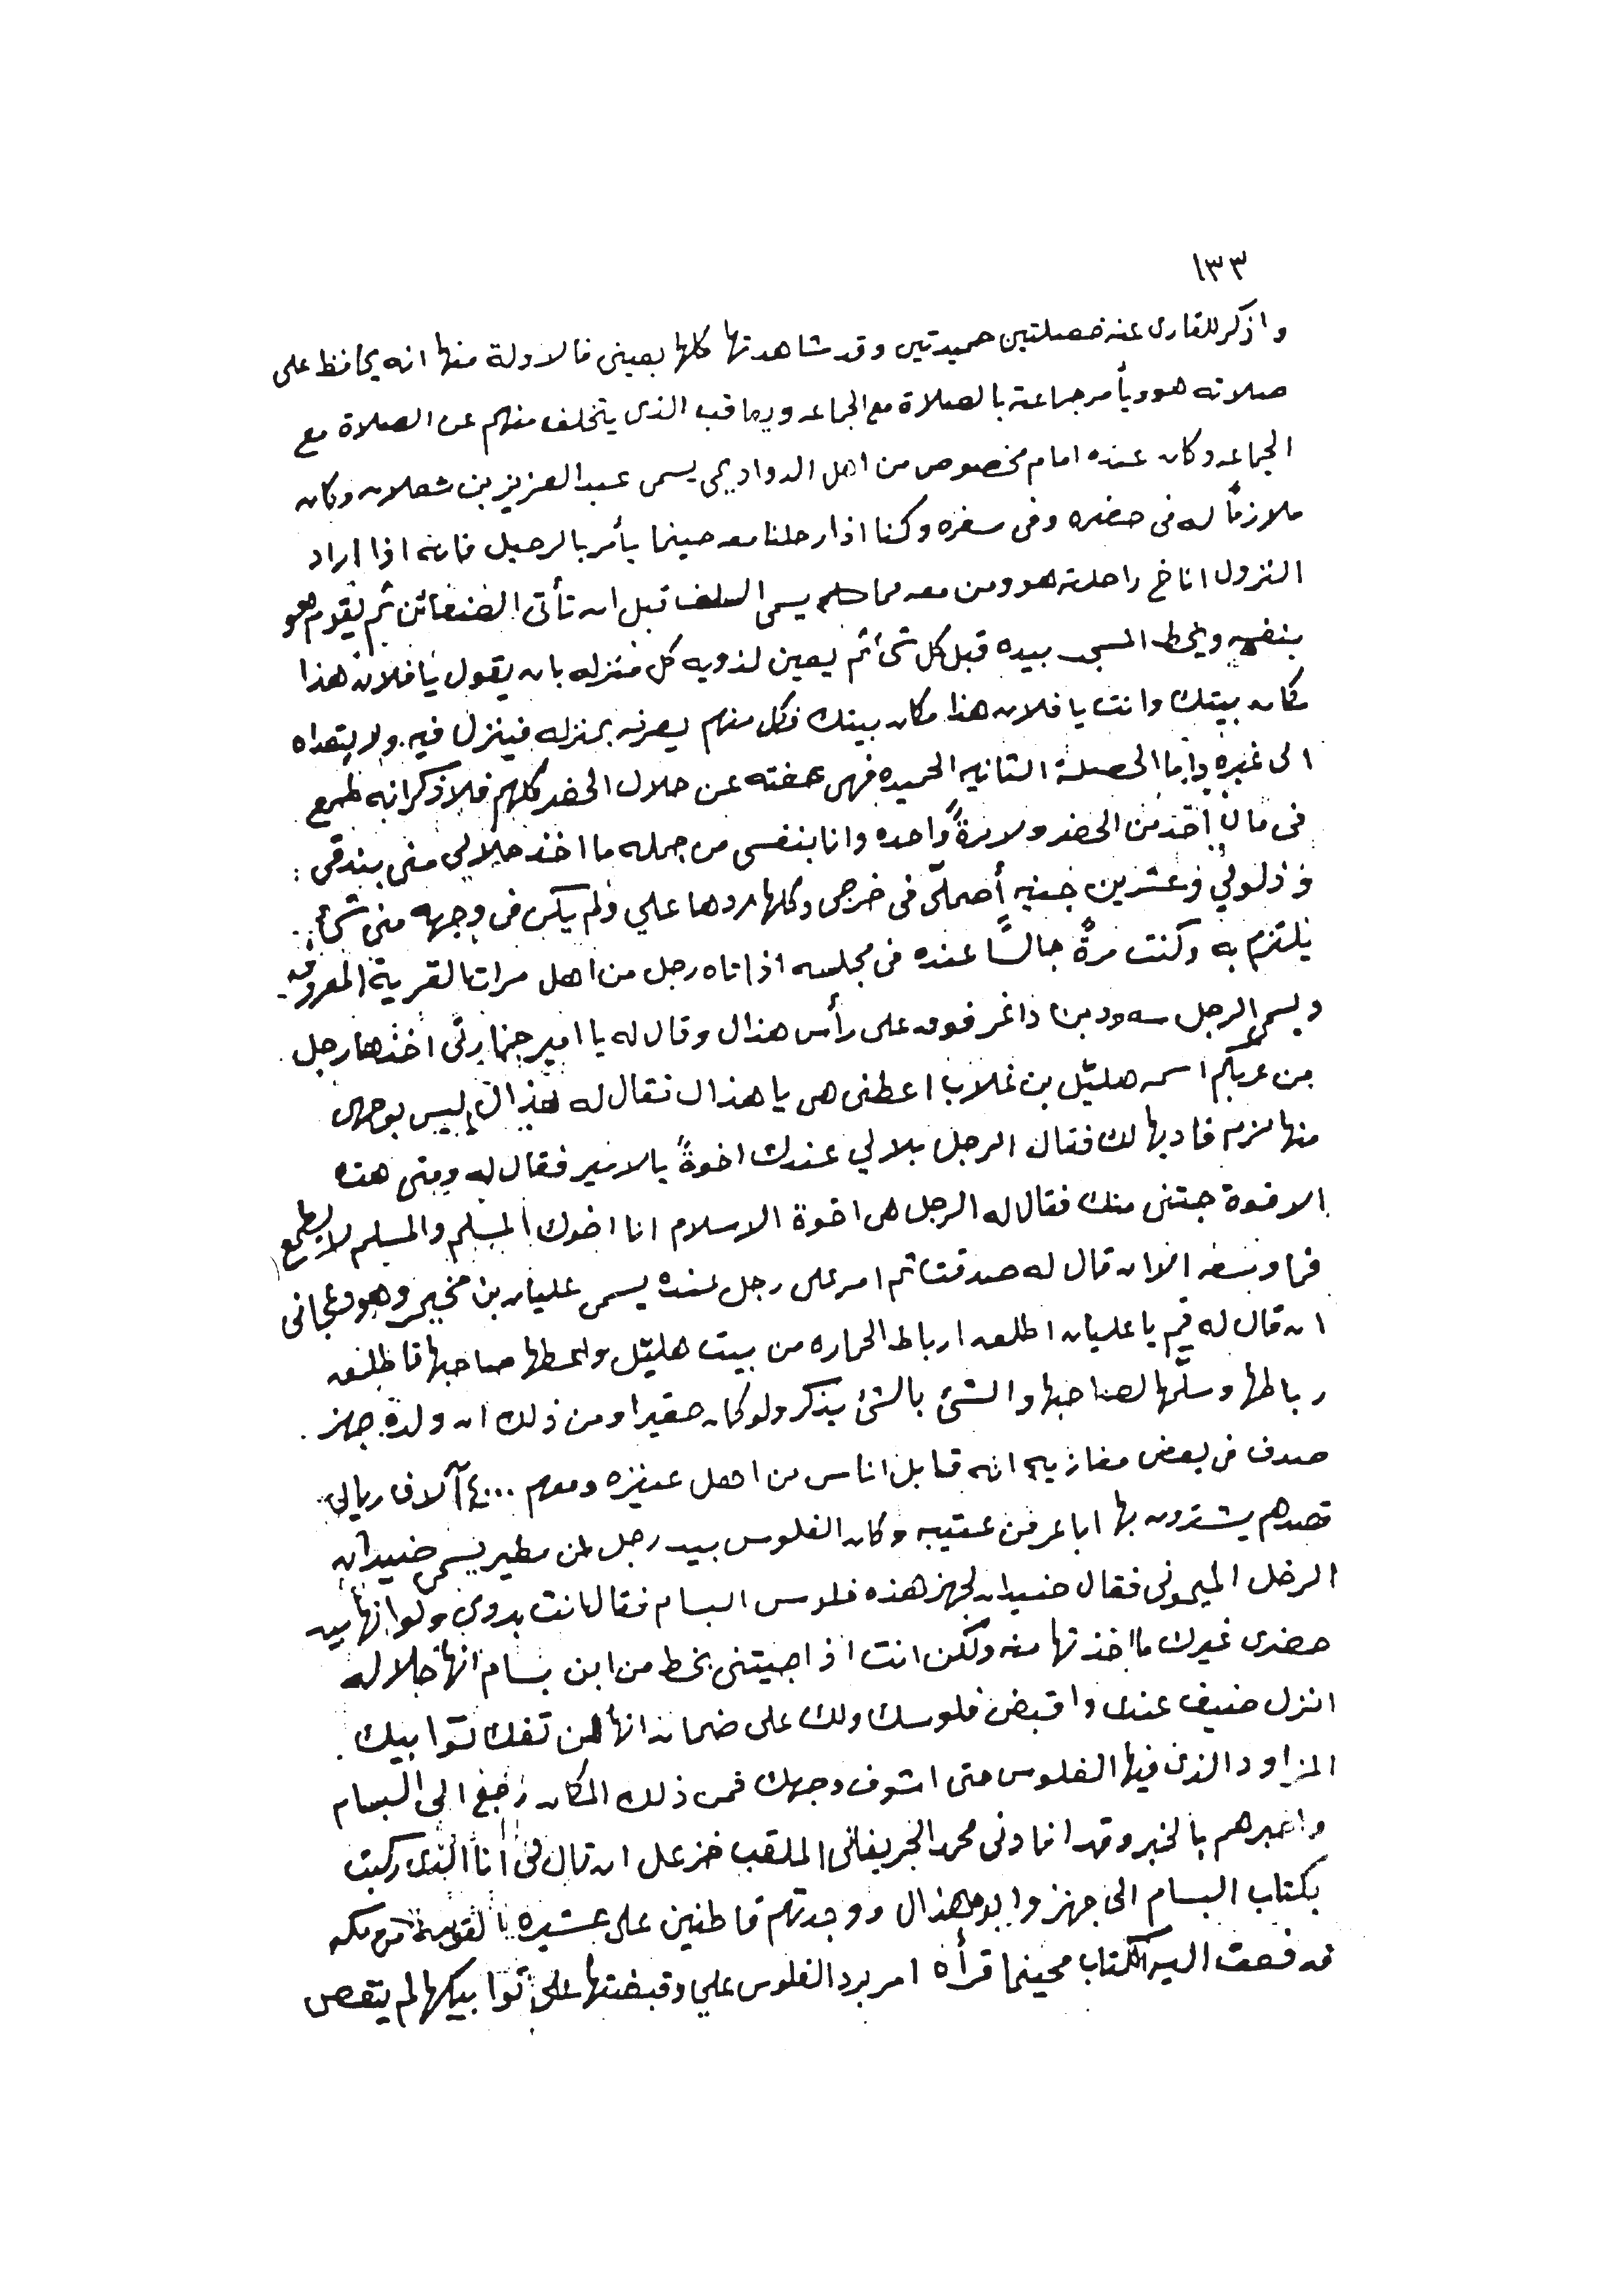 ١٣٣
واذكر للقارى عنه خصلتين حميدتين وقد شاهدتها كلها بعينى فالاولة منها انه يحافظ على
صلاته هو ويأمر جماعته بالصلاة مع الجماعه ويعاقب الذى يتخلف منهم عن الصلاة مع
الجماعه وكان عنده امام مخصوص من اهل الدوادمي يسمى عبد العزيز بن شعلان وكان
ملازمًا له فى حضره وفى سفره وكنا اذا رحلنا معه حينما يأمر بالرحيل فانه اذا اراد
النزول اناخ راحلته هو ومن معه مما يسمى السلف قبل ان تأتى الضعائن ثم يقوم هو
بنفسه ويخط المسجد بيده قبل كل شئ ثم يعين لذويه كل منزله بان يقول يا فلان هذا
مكان بيتك وانت يا فلان هذا مكان بيتك فكل منهم يعرف بمنزله فينزل فيه ولا يتعداه
الى غيره واما الخصلة الثانيه الحميده فهى عفته عن حلال الحضر كلهم فلا اذكر انه طمع
فى مال اخذ من الحضر ولا مرةً واحده وانا بنفسى من جمله ما اخذ حلالي منى بندقى
وذلولي وعشرين جنيه أصملّى فى خرجى وكلها ردها علي ولم يكن فى وجهه منى شئ
يلتزم به وكنت مرةً جالسًا عنده فى مجلسه اذ اتاه رجل من اهل مرات القرية المعروفه
ويسمى الرجل سعود بن داغر فوقف على رأس هذال وقال له يا امير جنابرتى اخذها رجل
من عربكم اسمه هليّل بن غلاب اعطنى هى يا هذال فقال له هذال ليس بوجهى
منها لزم فاديها لك فقال الرجل بلا لي عندك اخوةً يالامير فقال له ومتى هذه
الاخوة جتنى منك فقال له الرجل هى اخوة الاسلام انا اخوك المسلم والمسلم لا يطمع
فما وسعه الا ان قال له صدقت ثم امر على رجل عنده يسمى عليان بن مخيمر وهو دعجانى
ان قال له قم يا عليان اطلعه ارباط الحماره من بيت هليّل واعطها صاحبها فاطلعه
رباطها وسلّمها لصاحبها والشئ بالشئ يذكر ولو كان حقيرا ومن ذلك ان ولدة جهز
صدف فى بعض مغازيه انه قابل اناس من اهل عنيزه ومعهم ٤٠٠٠ آلاف ريال
قصدهم يشترون بها اباعر من عتيبه وكان الفلوس بيد رجل من مطير يسمى ضيدان
الرخل الميمونى فقال ضيدان لجهز هذه فلوس البسام فقال انت بدوى ولو انها بيد
حضرى غيرك ما اخذتها منه ولكن انت اذا جيتنى بخط من ابن بسام انها حلاله
انزل ضيف عندى واقبض فلوسك ولك على ضمان انها لن تفك توابيك
المزاود الذى فيها الفلوس حتى اشوف وجهك فمن ذلك المكان رجع الى البسام
واخبرهم بالخبر وقد افادنى محمد الخريفانى الملقب خزعل ان قال لى أنا الذى ركبت
بكتاب البسام الى جهز وابوه هذال ووجدتهم قاطنين على عشيره بالقرب من مكه
فدفعت اليه الكتاب فحينما قرأه امر برد الفلوس علي وقبضتها على توابيكها لم ينقص